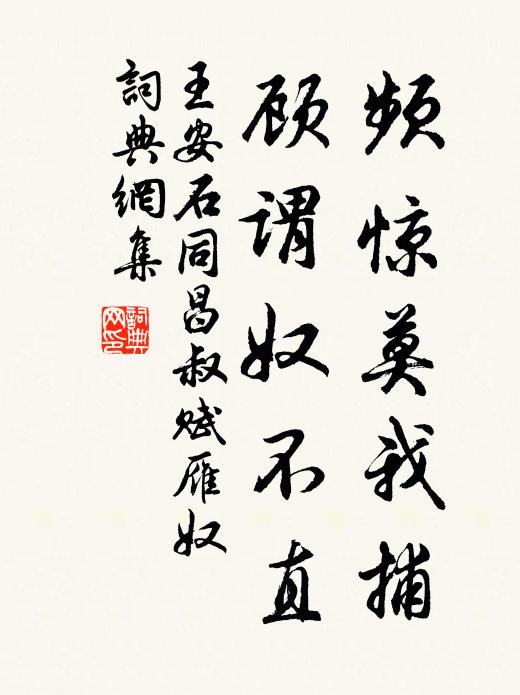 频惊莫我捕
顾谓奴不直
王安石同昌叔赋雁奴
詞典網集
詞典网印